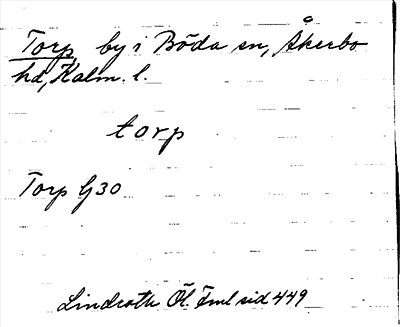 Torp, by i Böda sn, Åkerbo
hd, Kalm. l.
torp
Torp G30
Lindroth Öl. Fml sid 449